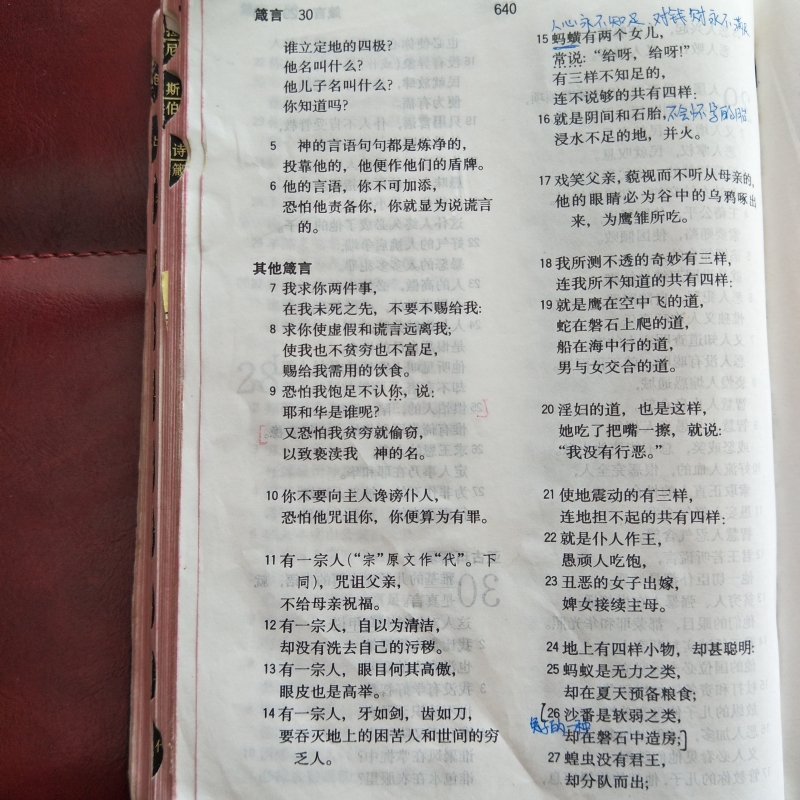 箴言 30
640
谁立定地的四极?
他名叫什么?
他儿子名叫什么?
你知道吗?
5 神的言语句句都是炼净的,
投靠他的,他便作他们的盾牌。
6 他的言语,你不可加添,
恐怕他责备你,你就显为说谎言
的。
其他箴言
7 我求你两件事,
在我未死之先,不要不赐给我:
8 求你使虚假和谎言远离我;
使我也不贫穷也不富足,
赐给我需用的饮食。
9 恐怕我饱足不认你,说:
耶和华是谁呢?
又恐怕我贫穷就偷窃,
以致亵渎我 神的名。
10 你不要向主人谗谤仆人,
恐怕他咒诅你,你便算为有罪。
11 有一宗人(“宗”原文作“代”。下
同),咒诅父亲,
不给母亲祝福。
12 有一宗人,自以为清洁,
却没有洗去自己的污秽。
13 有一宗人,眼目何其高傲,
眼皮也是高举。
14 有一宗人,牙如剑,齿如刀,
要吞灭地上的困苦人和世间的穷
乏人。
人心永不知足,对钱财永不满足
15 蚂蟥有两个女儿,
常说:“给呀,给呀!”
有三样不知足的,
连不说够的共有四样:
16 就是阴间和石胎,不会怀孕的胎
浸水不足的地,并火。
17 戏笑父亲,藐视而不听从母亲的,
他的眼睛必为谷中的乌鸦啄出
来,为鹰雏所吃。
18 我所测不透的奇妙有三样,
连我所不知道的共有四样:
19 就是鹰在空中飞的道,
蛇在磐石上爬的道,
船在海中行的道,
男与女交合的道。
20 淫妇的道,也是这样,
她吃了把嘴一擦,就说:
“我没有行恶。”
21 使地震动的有三样,
连地担不起的共有四样:
22 就是仆人作王,
愚顽人吃饱,
23 丑恶的女子出嫁,
婢女接续主母。
24 地上有四样小物,却甚聪明:
25 蚂蚁是无力之类,
却在夏天预备粮食;
26 沙番是软弱之类,
却在磐石中造房;
27 蝗虫没有君王,
却分队而出;
斯
伯
诗
篇